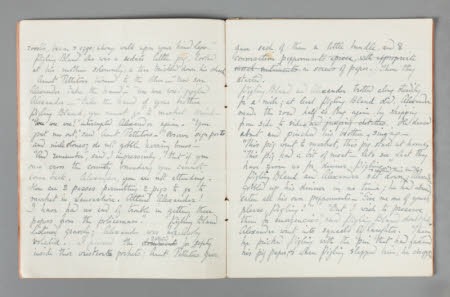 bacon & eggs; along walk upon your hind legs."
Pigling Bland who was a sedate little pig, looked
at his mother solemnly; a tear trickled down his cheek
Aunt Pettitoes turned to the other — "Now son
Alexander take the hand" — "wee wee wee" giggled
Alexander — "take the hand of your brother
Pigling Bland, you must go to market. Mind —"
"wee wee" interrupted Alexander again. "You
put me out," said Aunt Pettitoes — "Observe sign posts
and milestones; do not gobble herring bones —"
"And remember," said I impressively, "that if you
once cross the county boundary you cannot
come back. Alexander, you are not attending.
Here are 2 passes permitting 2 pigs to go to
market in Lancashire. Attend Alexander!
I have had no end of trouble in getting these
papers from the policeman." Pigling Bland
listened gravely; Alexander was hopelessly
volatile. I pinned the for safety
inside their waistcoate pockets; Aunt Pettitoes gave
gave each of them a little bundle, and 8
conversation peppermints
in screws of paper. Then they
started.
Pigling Bland and Alexander trotted along steadily
for a mile; at least Pigling Bland did. Alexander
made the road half as long again by skipping
from side to side. He danced
about and pinched his brother, singing —
"This pig went to market, this pig stayed at home,
"This pig had a bit of meat — let's see what they
have given us for dinner, Pigling?"
Pigling Bland and Alexander sat down
gobbled up his dinner in no time; he had already
eaten all his own peppermints. "Give me one of yours
please, Pigling." "But I wish to preserve
them for emergencies," said Pigling Bland doubtfully.
Alexander went into squeals of laughter. Then
he pricked Pigling with the pin that had fastened
his pig paper; & when Pigling slapped him, he dropped